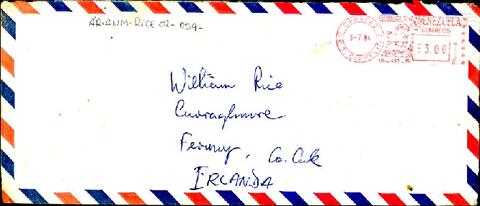 ARIAUM-RICE 02-059-
VENEZUELA
CORREOS
3-7.84
3.00
William Rice
Curraghmore
Fermoy, Co. Cork
IRLANDA